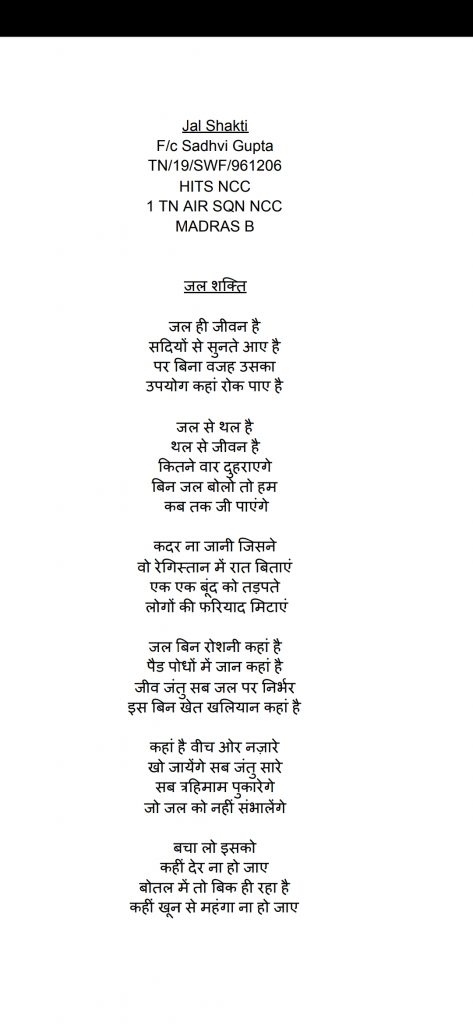 Jal Shakti
F/c Sadhvi Gupta
TN/19/SWF/961206
HITS NCC
1 TN AIR SQN NCC
MADRAS B
जल शक्ति
जल ही जीवन है
सदियों से सुनते आए है
पर बिना वजह उसका
उपयोग कहां रोक पाए है
जल से थल है
थल से जीवन है
कितने वार दुहराएगे
बिन जल बोलो तो हम
कब तक जी पाएंगे
कदर ना जानी जिसने
वो रेगिस्तान में रात बिताएं
एक एक बूंद को तड़पते
लोगों की फरियाद मिटाएं
जल बिन रोशनी कहां है
पैड पोधों में जान कहां है
जीव जंतु सब जल पर निर्भर
इस बिन खेत खलियान कहां है
कहां है वीच ओर नज़ारे
खो जायेंगे सब जंतु सारे
सब त्रहिमाम पुकारेगे
जो जल को नहीं संभालेंगे
बचा लो इसको
कहीं देर ना हो जाए
बोतल में तो बिक ही रहा है
कहीं खून से महंगा ना हो जाए